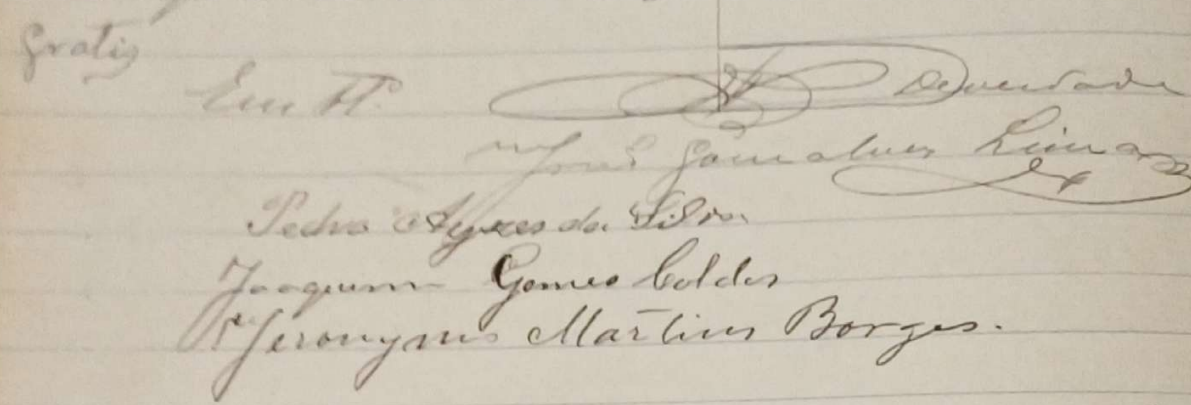 Gratis
Em Tº. de verdade
José Gonçalves Lima
Pedro Ayres da Silva
Joaquim Gomes Caldas
Jeronymo Martins Borges.